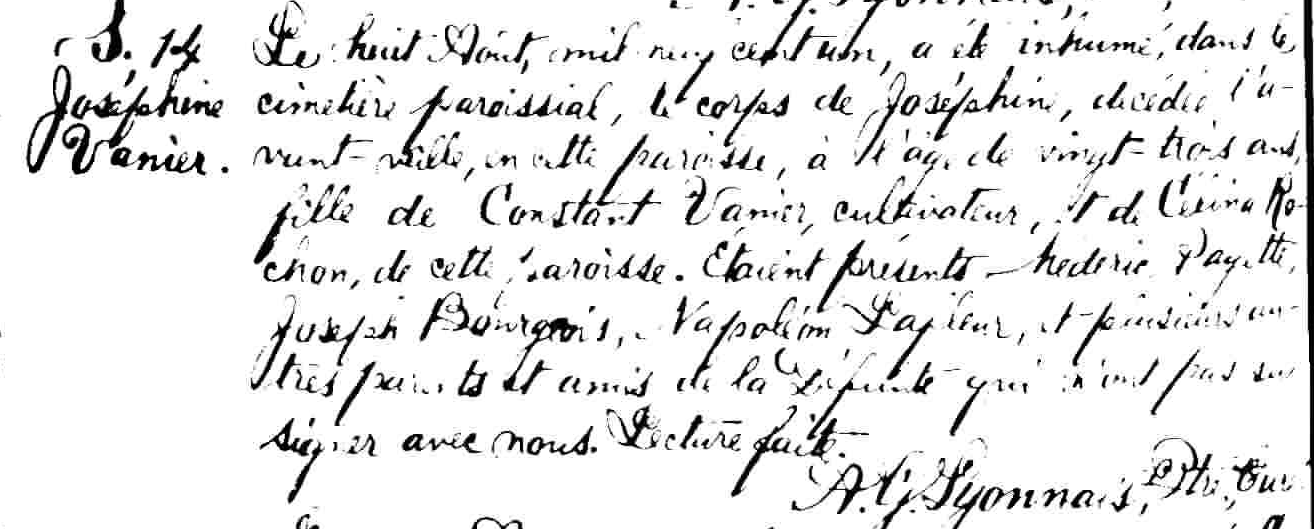 A. G. Lyonnais,
S. 14
Joséphine
Vanier.
Le huit Août, mil neuf cent un, a été inhumé, dans le
cimetière paroissial, le corps de Joséphine, décédée l'a-
vant-veille, en cette paroisse, à l'âge de vingt-trois ans,
fille de Constant Vanier, cultivateur, et de Ro-
chon, de cette paroisse. Etaient présents Médéric Payette,
Joseph Bourgeois, Napoléon et plusieurs au-
tres parents et amis de la défunte qui n'ont pas su
signer avec nous. Lecture faite.
A. G. Lyonnais, Ptre, Curé